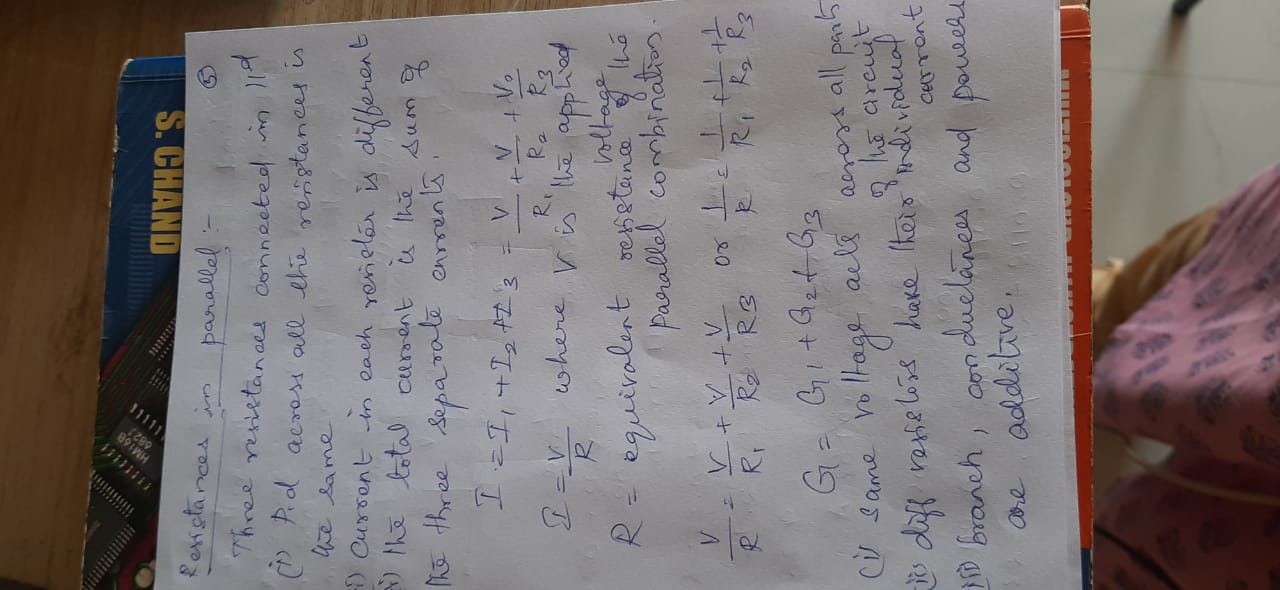 Resistances in parallel :- (5)
Three resistances connected in ||d
(i) P.d across all the resistances is
the same
(ii) Current in each resistor is different
the total current is the sum of
the three separate currents.
I = I1 + I2 + I3 = V/R1 + V/R2 + V/R3
I = V/R where V is the applied voltage
R = equivalent resistance of the
parallel combination.
V/R = V/R1 + V/R2 + V/R3 or 1/R = 1/R1 + 1/R2 + 1/R3
G = G1 + G2 + G3
(i) same voltage acts across all parts of the circuit
(ii) diff resistors have their individual current
(iii) branch, conductances and powers
are additive.
S. CHAND
HM16B
682